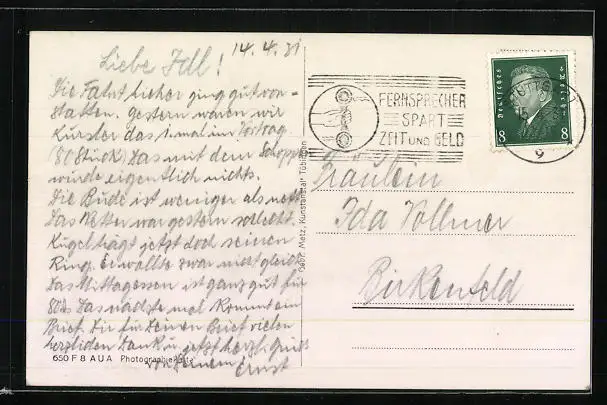 14.4.31
Liebe Idl!
Die Fahrt hieher ging gut von-
statten. Gestern waren wir
Künstler das 1. mal im Vortrag
(80 Stück) Das mit dem Schoppen
würde eigentlich nichts.
Die Bude ist weniger als nett.
Das Wetter war gestern schlecht.
Kugel trägt jetzt doch seinen
Ring. Er wollte zwar nicht gleich
Das Mittagessen ist ganz gut für
80 Das nächste mal kommt ein
Brief. Dir für Deinen Brief vielen
herzlichen Dank u. jetzt herzl. Gruß
von Deinem Ernst
650 F 8 A U A Photographie
Gebr. Metz, Kunstanstalt Tübingen
FERNSPRECHER
SPART
ZEIT UND GELD
Deutsches Reich
8 8
9
Fräulein
Ida Vollmer
Birkenfeld